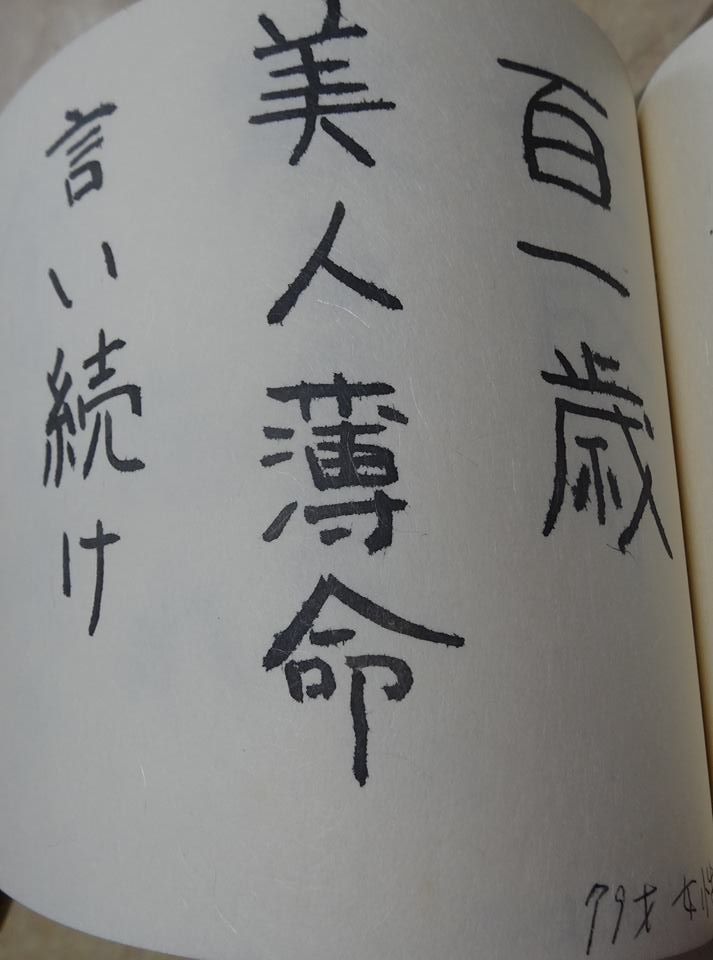 百一歳
美人薄命
言い続け
79才 女性